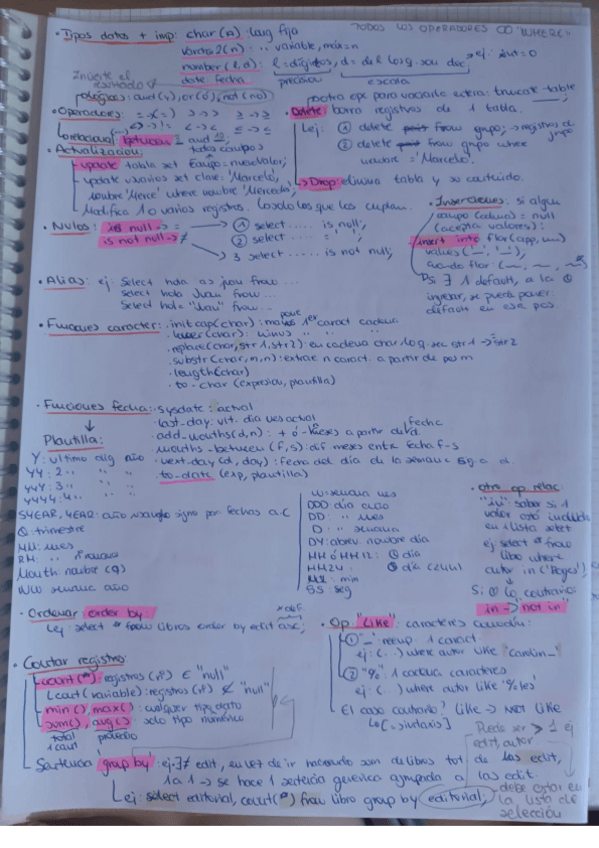 TODOS LOS OPERADORES CO "WHERE"
· Tipos datos + imp: char(n): long fija
varchar2(n): " variable, máx=n
number(l,d): l=dígitos, d= del long. sou dec. → ej: 2nd=0
date fecha. precisión escala
Inserte el resultado
Lógicos: and(y), or(ó), not(no)
· Operadores: = → = > → > ≥ → ≥
relacional <> → != < → < ≤ → ≤
between 1 and 10:
todos campos
· Actualización:
update tabla set campo = nuevoValor;
update usuarios set clave='Marcelo',
nombre='Mercé' where nombre='Mercedes';
Modifica 1 o varios registros. los que los cumplan.
→ otra opc para vaciarla entera: truncate table
· Delete: borra registros de 1 tabla.
Ej: ① delete from grupo; → registros de grupo
② delete from grupo where
nombre = 'Marcelo'.
→ Drop: elimina tabla y su contenido.
· Nulos: is null → =
is not null → ≠
① select ..... is null;
② select ... = ' ';
3 select ...... is not null;
· Inserciones: si algún
campo (colum) = null
(acepta valores):
insert into flor(app, um)
values('__', '__');
cuando flor: (__, __, __)
Si ∃ 1 default, a la
ingresar, se puede poner
default en esa pos.
· Alias: ej Select hola as juan from ...
Select hola Juan from ...
Select hola "Juan" from ...
· Funciones caracter: . initcap(char): pone mayús 1er caract cadena.
. lower(char): minus " " "
. replace(char, str1, str2): en cadena char busca sec str1 → str2
. substr(char, m, n): extrae n caract. a partir de pos m
. length(char)
. to-char (expresion, plantilla)
· Funciones fecha: · sysdate: actual
· last-day: ult. día mes actual
· add-months(d,n): + ó - meses a partir de fecha d
· months-between(f,s): dif meses entre fecha f-s
· next-day(d, day): fecha del día de la semana sig a d.
· to-date(exp, plantilla)
Plantilla:
Y: último dig año
YY: 2 " "
YYY: 3 " "
YYYY: 4 " "
SYEAR, YEAR: año inglés signo por fechas a.C
Q: trimestre
MM: mes
RM: " romano
Month: nombre (9)
WW semana año
W = semana mes
DDD: día año
DD: " mes
D: " semana
DY: abrev. nombre día
HH ó HH12: día
HH24: día (24h)
MI: min
SS: seg
· otro op. relac:
"in": saber si 1
valor está incluido
en 1 lista
ej: select * from
libro where
autor in ('Borges');
Si lo contrario:
in → "not in"
· Ordenar order by:
Ej select * from libros order by edit asc;
· Op. "Like": caracteres comodín:
① "_": reemp 1 caract
ej: (...) where autor like 'Carolin_'
② "%": 1 cadena caracteres
ej: (...) where autor like '%les'
El caso contrario? like → NOT like
[= sintaxis]
· Contar registro:
count(*): registros (nº) ∈ "null"
count(variable): registros (nº) ∉ "null"
min(), max(): cualquier tipo dato
sum(), avg(): solo tipo numérico
total promedio
1 cant
Sentencia "group by": ej: ∃≠ edit, en vez de ir haciendo sum de libros tot de las edit,
1 a 1 → se hace 1 sentencia generica agrupada a las edit.
Ej: select editorial, count(*) from libro group by editorial;
Puede ser > 1 ej
edit, autor
debe estar en
la lista de
selección